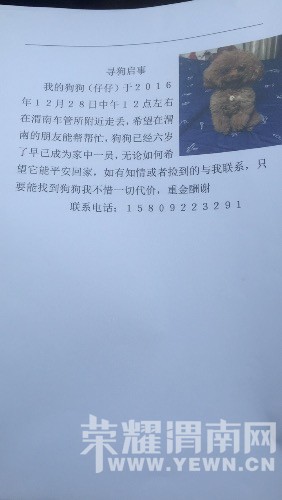 寻狗启事
我的狗狗(仔仔)于２０１６
年１２月２８日中午１２点左右
在渭南车管所附近走丢，希望在渭
南的朋友能帮帮忙，狗狗已经六岁
了早已成为家中一员，无论如何希
望它能平安回家，如有知情或者捡到的与我联系，只
要能找到狗狗我不惜一切代价，重金酬谢
联系电话：１５８０９２２３２９１
荣耀渭南网
WWW.YEWN.CN